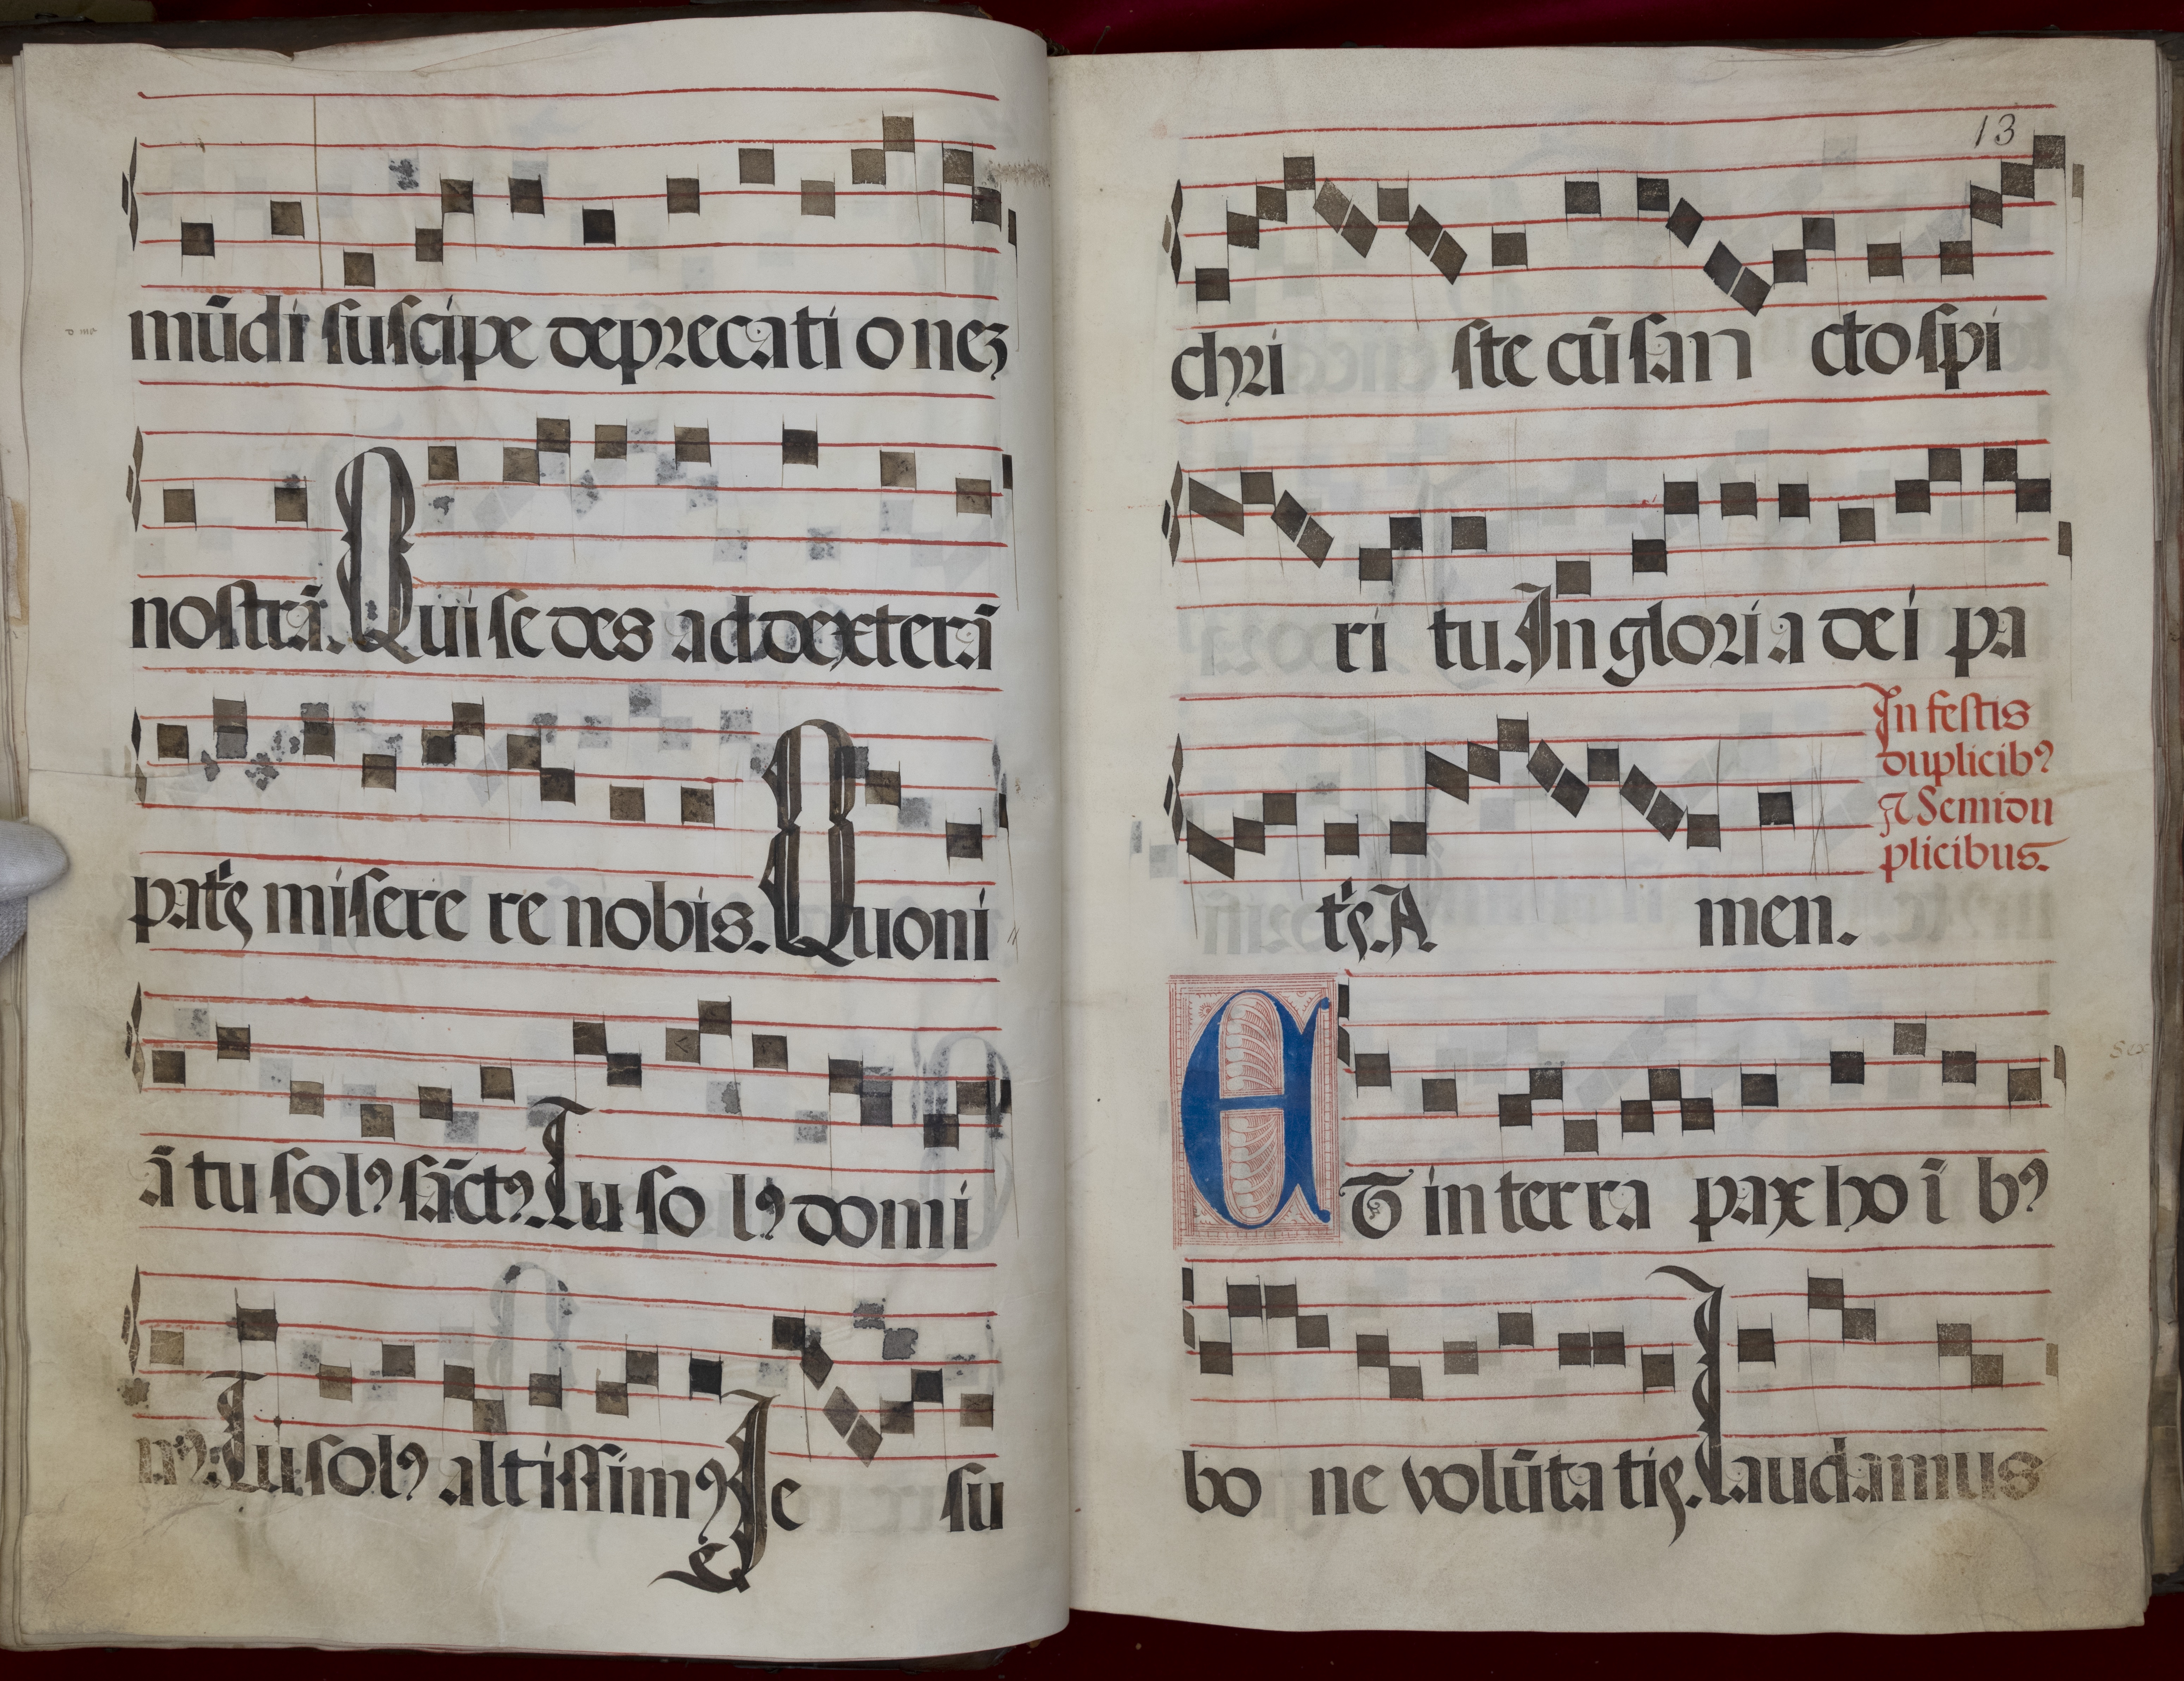 mūdi suscipe deprecati o nez
nostrā. Qui se des ad dexterā
patꝭ misere re nobis. Quoni
ā tu solꝰ sāctꝰ. Tu so lꝰ domi
nꝰ. Tu solꝰ altissimꝰ Je su
13
chri ste cū san cto spi
ri tu. In glori a dei pa
In festis
duplicibꝰ
⁊ Semidu
plicibus.
tꝭ. A men.
ET in terra pax ho ī bꝰ
bo ne volūta tiꝭ. Laudamus